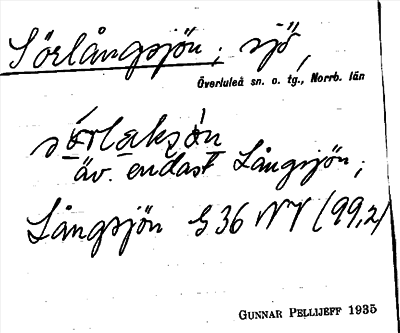 Sörlångsjön; sjö,
Överluleå sn. o. tg., Norrb. län
sórlaksòn
äv. endast Långsjön;
Långsjön G 36 NV (99,2)
GUNNAR PELLIJEFF 1935